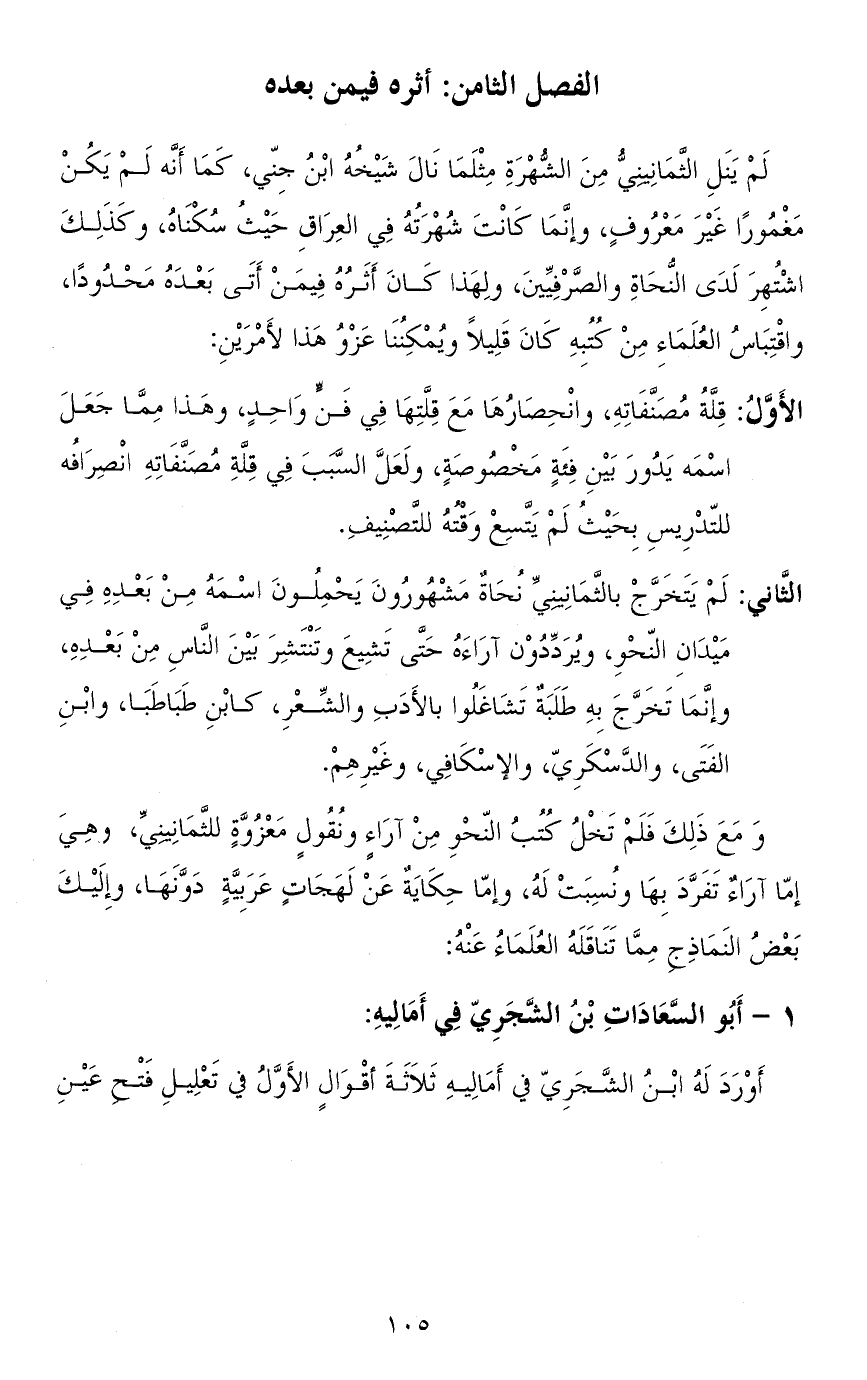 الفصل الثامن: أثره فيمن بعده
لَمْ يَنَلِ الثَّمَانِينِيُّ مِنَ الشُّهْرَةِ مِثْلَمَا نَالَ شَيْخُهُ ابْنُ جِنّي، كَمَا أَنَّه لَـمْ يَكُـنْ
مَغْمُورًا غَيْرَ مَعْرُوفٍ، وإنَّمَا كَانَتْ شُهْرَتُهُ فِي العِرَاقِ حَيْثُ سُكْنَاهُ، وكَذَلِـكَ
اشْتُهِرَ لَدَى النُّحَاةِ والصَّرْفِيِّينَ، ولِهَذَا كَـانَ أَثَـرُهُ فِيمَـنْ أَتَـى بَعْـدَهُ مَحْـدُودًا،
واقْتِبَاسُ العُلَمَاءِ مِنْ كُتُبِهِ كَانَ قَلِيلاً ويُمْكِنُنَا عَزْوُ هَذَا لأَمْرَيْنِ:
الأَوَّلُ: قِلَّةُ مُصَنَّفَاتِهِ، وانْحِصَارُهَا مَعَ قِلَّتِهَا فِي فَـنٍّ وَاحِـدٍ، وهَـذَا مِمَّـا جَعَـلَ
اسْمَه يَدُورَ بَيْنِ فِئَةٍ مَخْصُوصَةٍ، ولَعَلَّ السَّبَبَ فِي قِلَّةِ مُصَنَّفَاتِهِ انْصِرَافُه
للتّدْرِيسِ بِحَيْثُ لَمْ يَتَّسِعْ وَقْتُهُ للتَّصْنِيفِ.
الثَّاني: لَمْ يَتَخَرَّجْ بالثَّمَانِينِيِّ نُحَاةٌ مَشْهُورُونَ يَحْمِلُـونَ اسْـمَهُ مِـنْ بَعْـدِهِ فِـي
مَيْدَانِ النّحْوِ، ويُرَدِّدُوْنَ آرَاءَهُ حَتَّى تَشِيعَ وتَنْتَشِرَ بَيْنَ النَّاسِ مِنْ بَعْـدِهِ،
وإنَّمَا تَخَرَّجَ بِهِ طَلَبَةٌ تَشَاغَلُوا بالأَدَبِ والشِّـعْرِ، كـابْنِ طَبَاطَبَـا، وابْـنِ
الفَتَى، والدَّسْكَرِيّ، والإسْكَافِي، وغَيْرِهِمْ.
وَ مَعَ ذَلِكَ فَلَمْ تَخْلُ كُتُبُ النّحْوِ مِنْ آرَاءٍ ونُقُولٍ مَعْزُوَّةٍ للثَّمَانِينِيِّ، وهِـيَ
إمّا آرَاءٌ تَفَرَّدَ بِهَا ونُسِبَتْ لَهُ، وإمّا حِكَايَةٌ عَنْ لَهَجَاتٍ عَرَبِيَّةٍ دَوَّنَهَـا، وإلَيْـكَ
بَعْضُ النَمَاذِجِ مِمَّا تَنَاقَلَهُ العُلَمَاءُ عَنْهُ:
١ – أَبُو السَّعَادَاتِ بْنُ الشَّجَرِيّ فِي أَمَالِيهِ:
أَوْرَدَ لَهُ ابْـنُ الشَّـجَرِيّ في أَمَالِيـهِ ثَلاَثَـةَ أقْـوَالٍ الأَوَّلُ فِي تَعْلِيـلِ فَتْـحِ عَيْـنِ
١٠٥